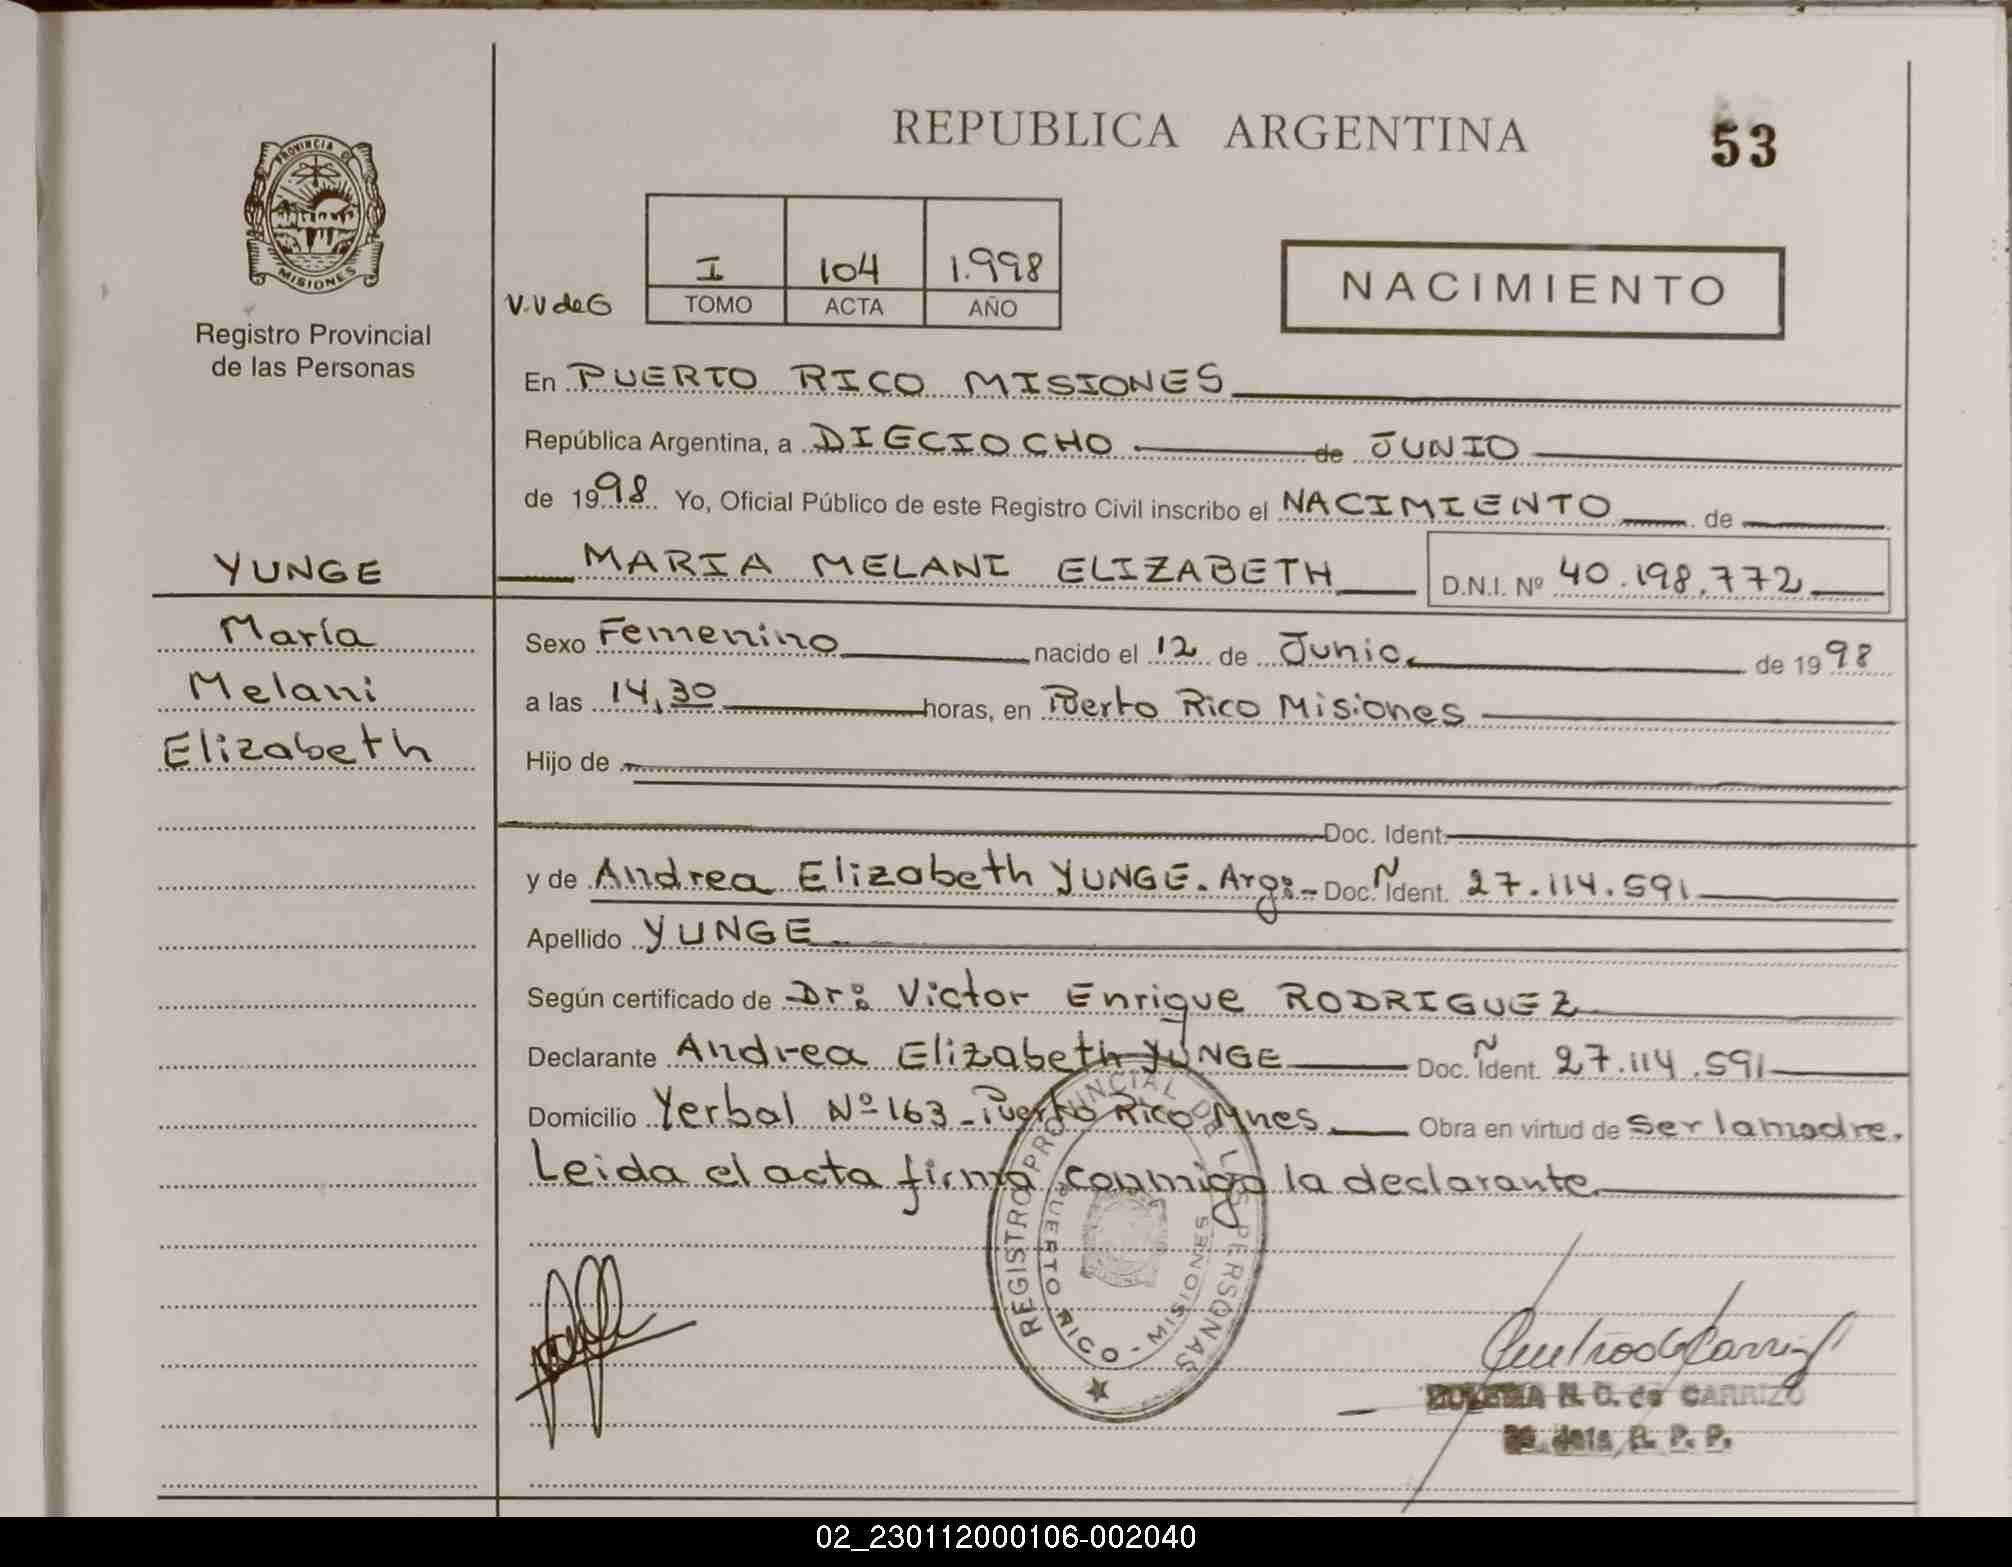 REPUBLICA ARGENTINA
53
PROVINCIA DE
MISIONES
Registro Provincial
de las Personas
V.V de G
I 104 1.998
TOMO ACTA AÑO
NACIMIENTO
En PUERTO RICO MISIONES
República Argentina, a DIECIOCHO de JUNIO
de 1998 Yo, Oficial Público de este Registro Civil inscribo el NACIMIENTO de
MARIA MELANI ELIZABETH D.N.I. Nº 40.198.772
YUNGE
María
Melani
Elizabeth
Sexo Femenino nacido el 12 de Junio de 1998
a las 14,30 horas, en Puerto Rico Misiones
Hijo de
Doc. Ident.
y de Andrea Elizabeth YUNGE. Arg:- Doc. Ñ Ident. 27.114.591
Apellido YUNGE
Según certificado de Dr: Victor Enrique RODRIGUEZ
Declarante Andrea Elizabeth YUNGE Doc. Ñ Ident. 27.114.591
Domicilio Yerbal Nº 163 - Puerto Rico Mnes. Obra en virtud de ser la madre.
Leida el acta firma conmigo la declarante.
REGISTRO PROVINCIAL DE LAS PERSONAS
PUERTO RICO - MISIONES
N. C. de CARRIZO
R. P. P.
02_230112000106-002040